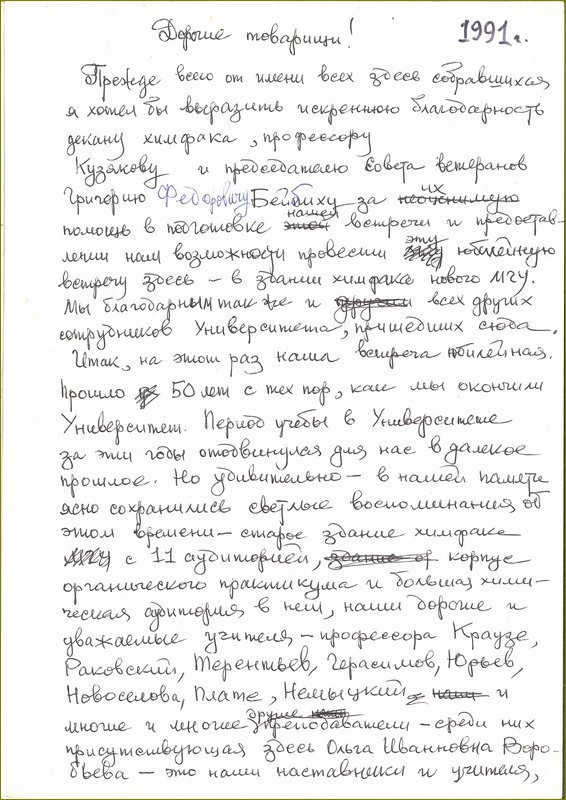 Дорогие товарищи!
1991 г.
Прежде всего от имени всех здесь собравшихся
я хотел бы выразить искреннюю благодарность
декану химфака, профессору
Кузякову и председателю совета ветеранов
Григорию Федоровичу Бейбиху за их
помощь в подготовке нашей встречи и предостав-
лении нам возможности провести эту юбилейную
встречу здесь – в здании химфака нового МГУ.
Мы благодарны также и всех других
сотрудников Университета, пришедших сюда.
Итак, на этот раз наша встреча юбилейная.
Прошло 50 лет с тех пор, как мы окончили
Университет. Период учебы в Университете
за эти годы отодвинулся для нас в далекое
прошлое. Но удивительно – в нашей памяти
ясно сохранились светлые воспоминания об
этом времени – старое здание химфака
МГУ с 11 аудиторией, здание корпус
органического практикума и большая хими-
ческая аудитория в нем, наши дорогие и
уважаемые учителя – профессора Краузе,
Раковский, Терентьев, Герасимов, Юрьев,
Новоселова, Плате, Немыцкий и
многие и многие другие преподаватели – среди них
присутствующая здесь Ольга Ивановна Воро-
бьева – это наши наставники и учителя,